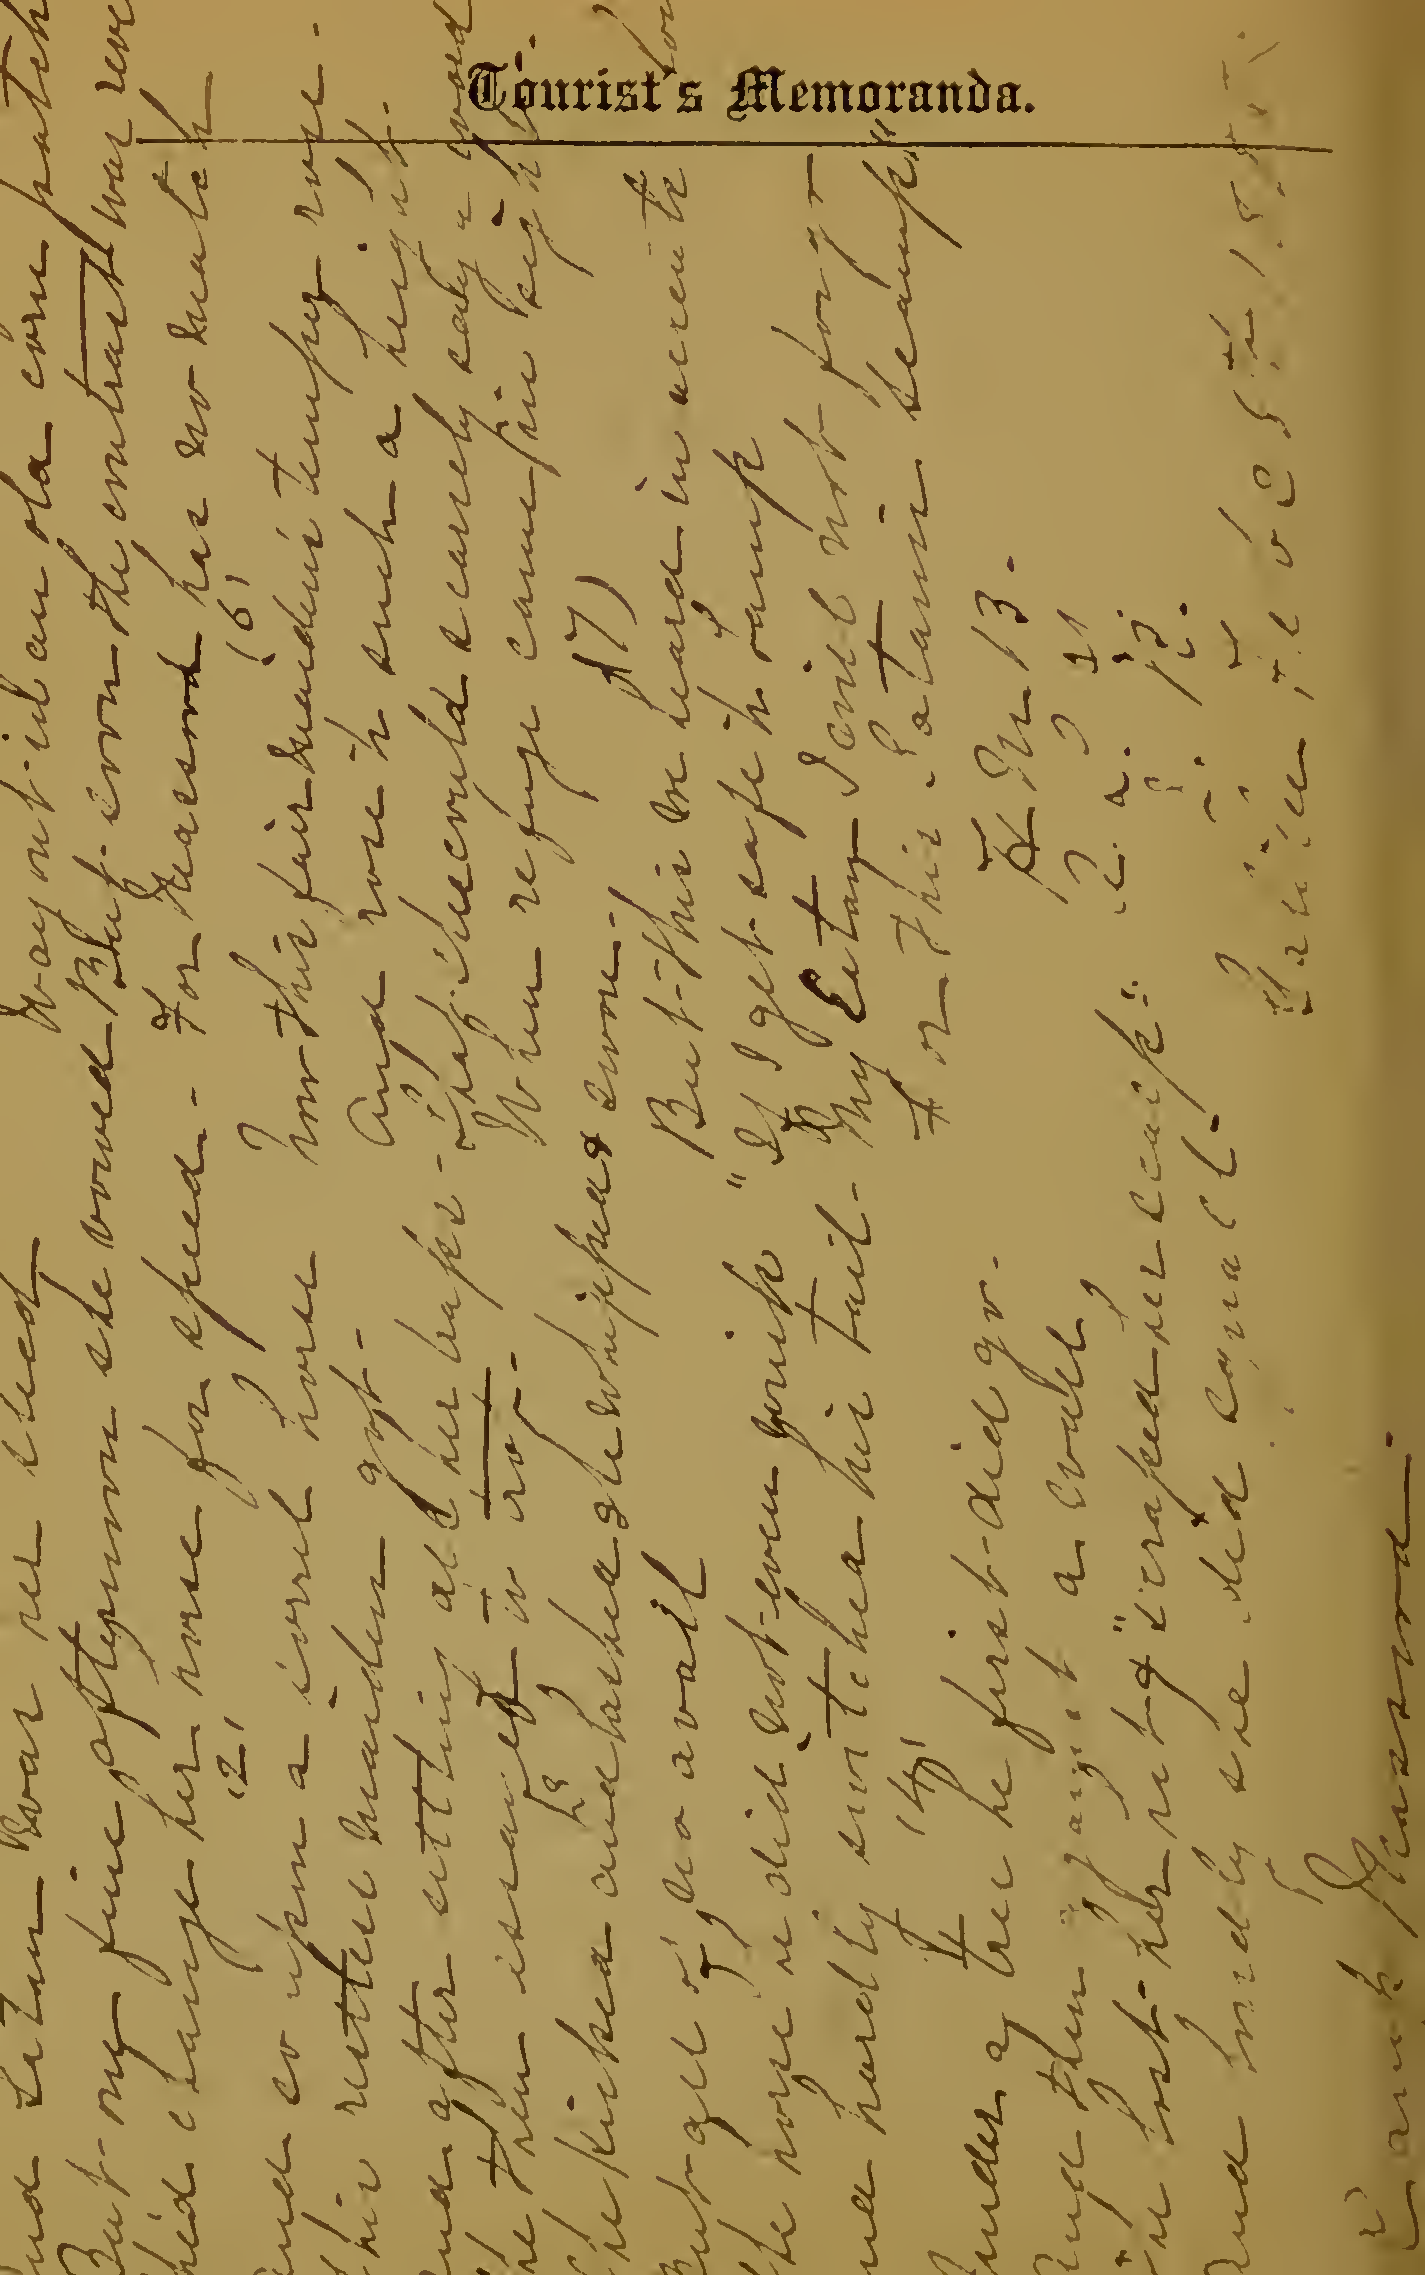 Tourist's Memoranda.
Satan was her steed
But one fine afternoon she vowed
She'd change her horse for speed -
(2)
And so upon a sorrel horse
This restless maiden got -
And after settling all her traps -
She then essayed to trot -
She kicked and thrashed & she whipped & swore -
But all of no avail
The horse he did not even wink
And hardly switched his tail -
(4)
Under a tree he first did go.
And then against a
She lost her net & "scraped her scalp"
And loudly she did squall
Way out in an old corn patch
But even the contrast was
For has no match
(6)
Now this fair maiden's temper rose.
And rose to such a height.
That she could scarcely say a word
When refuge came
(7)
But this we heard in accents
"If I get safe to camp
My Satan I will not forgo
For this Satanic scamp"